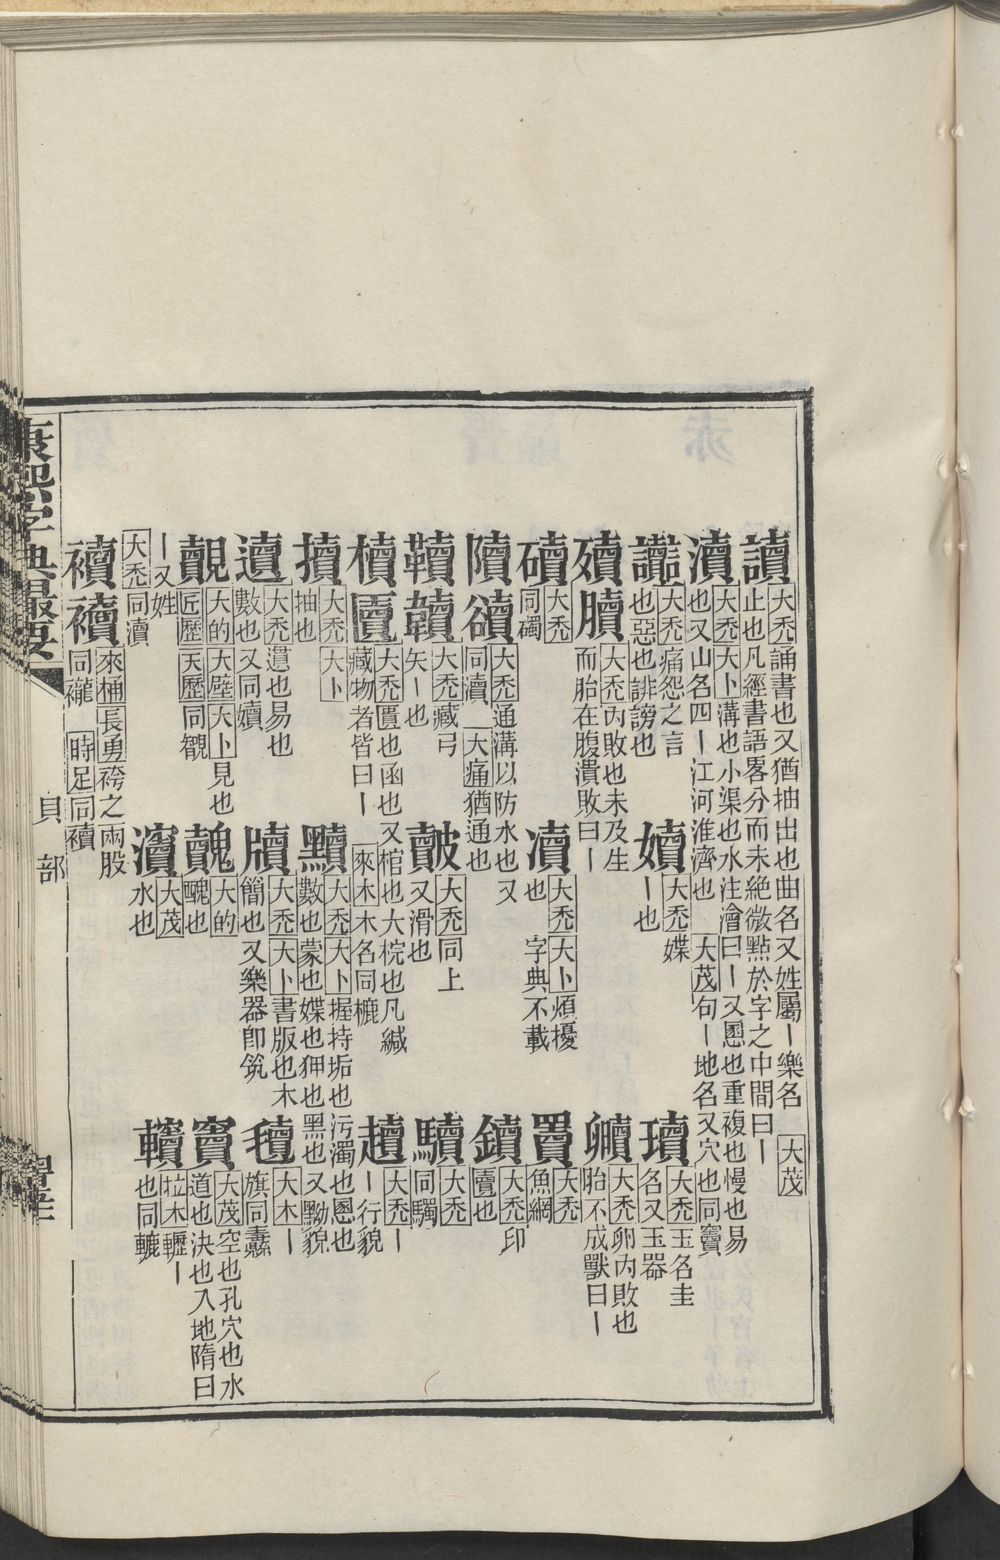 讀 大禿 誦書也又猶抽出也曲名又姓屬丨樂名 大茂
止也凡經書語畧分而未絶微點於字之中間曰丨
瀆 大禿 大卜 溝也小渠也水注澮曰丨又慁也重複也慢也易
也又山名四丨江河淮濟也 大茂 句丨地名又穴也同竇
讟 大禿 痛怨之言
也惡也誹謗也
嬻 大禿 媟
丨也
瓄 大禿 玉名圭
名又玉器
殰 牘 大禿 內敗也未及生
而胎在腹潰敗曰丨
大禿 卵內敗也
胎不成獸曰丨
碩 大禿
同磆
凟 大禿 大卜 煩擾
也 字典不載
䍞 大禿
魚網
隫 㱩 大禿 通溝以防水也又
同瀆 大痛 猶通也
鑟 大禿 印
賣也
韇 韥 大禿 藏弓
矢丨也
皾 大禿 同上
又滑也
驥 大禿
同騳
櫝 匵 大禿 匱也函也又棺也大梡也凡緘
藏物者皆曰丨 來木 木名同樚
䢱 大禿 丨
丨行貌
擩 大禿 大卜
抽也
黷 大禿 大卜 握持垢也污濁也慁也
數也蒙也媟也狎也黑也又黝貌
遺 大禿 䢱也易也
數也又同嬻
牘 大禿 大卜 書版也木
簡也又樂器卽筑
氌 大木 丨
旗同纛
覿 大的 大壁 大卜 見也
匠歷 天歷 同覩
䫳 大的
醜也
竇 大茂 空也孔穴也水
道也決也入地隋曰
丨又姓
大禿 同瀆
瀆 大茂
水也
轒 拉木 轣丨
也同轆
襩 襩 來桶 長勇 袴之兩股
同襱 時足 同襡
康熙字典撮要
貝部